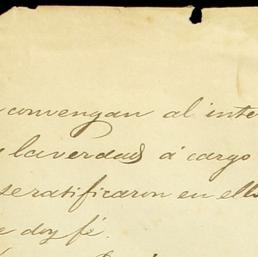 convengan al inte
la verdad á cargo
se ratificaron en ell
doy fé.